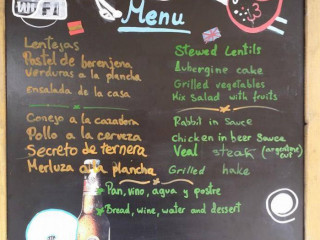 WIFI
Menu
Lentejas
Pastel de berenjena
Verduras a la plancha
ensalada de la casa
Stewed Lentils
Aubergine cake
Grilled vegetables
Mix Salad with fruits
Conejo a la cazadora
Pollo a la cerveza
Secreto de ternera
Merluza a la plancha
Rabbit in Sauce
Chicken in beer Sauce
Veal steak (argentine cut)
Grilled hake
Pan, vino, agua y postre
Bread, wine, water and dessert